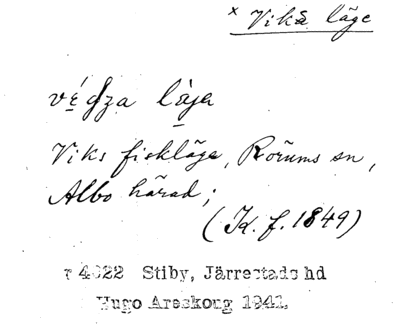 x Viks läge
védza làja
Viks fiskläge, Rörums sn,
Albo härad;
(K. f. 1849)
r 4022 Stiby, Järrestads hd
Hugo Areskoug 1941.